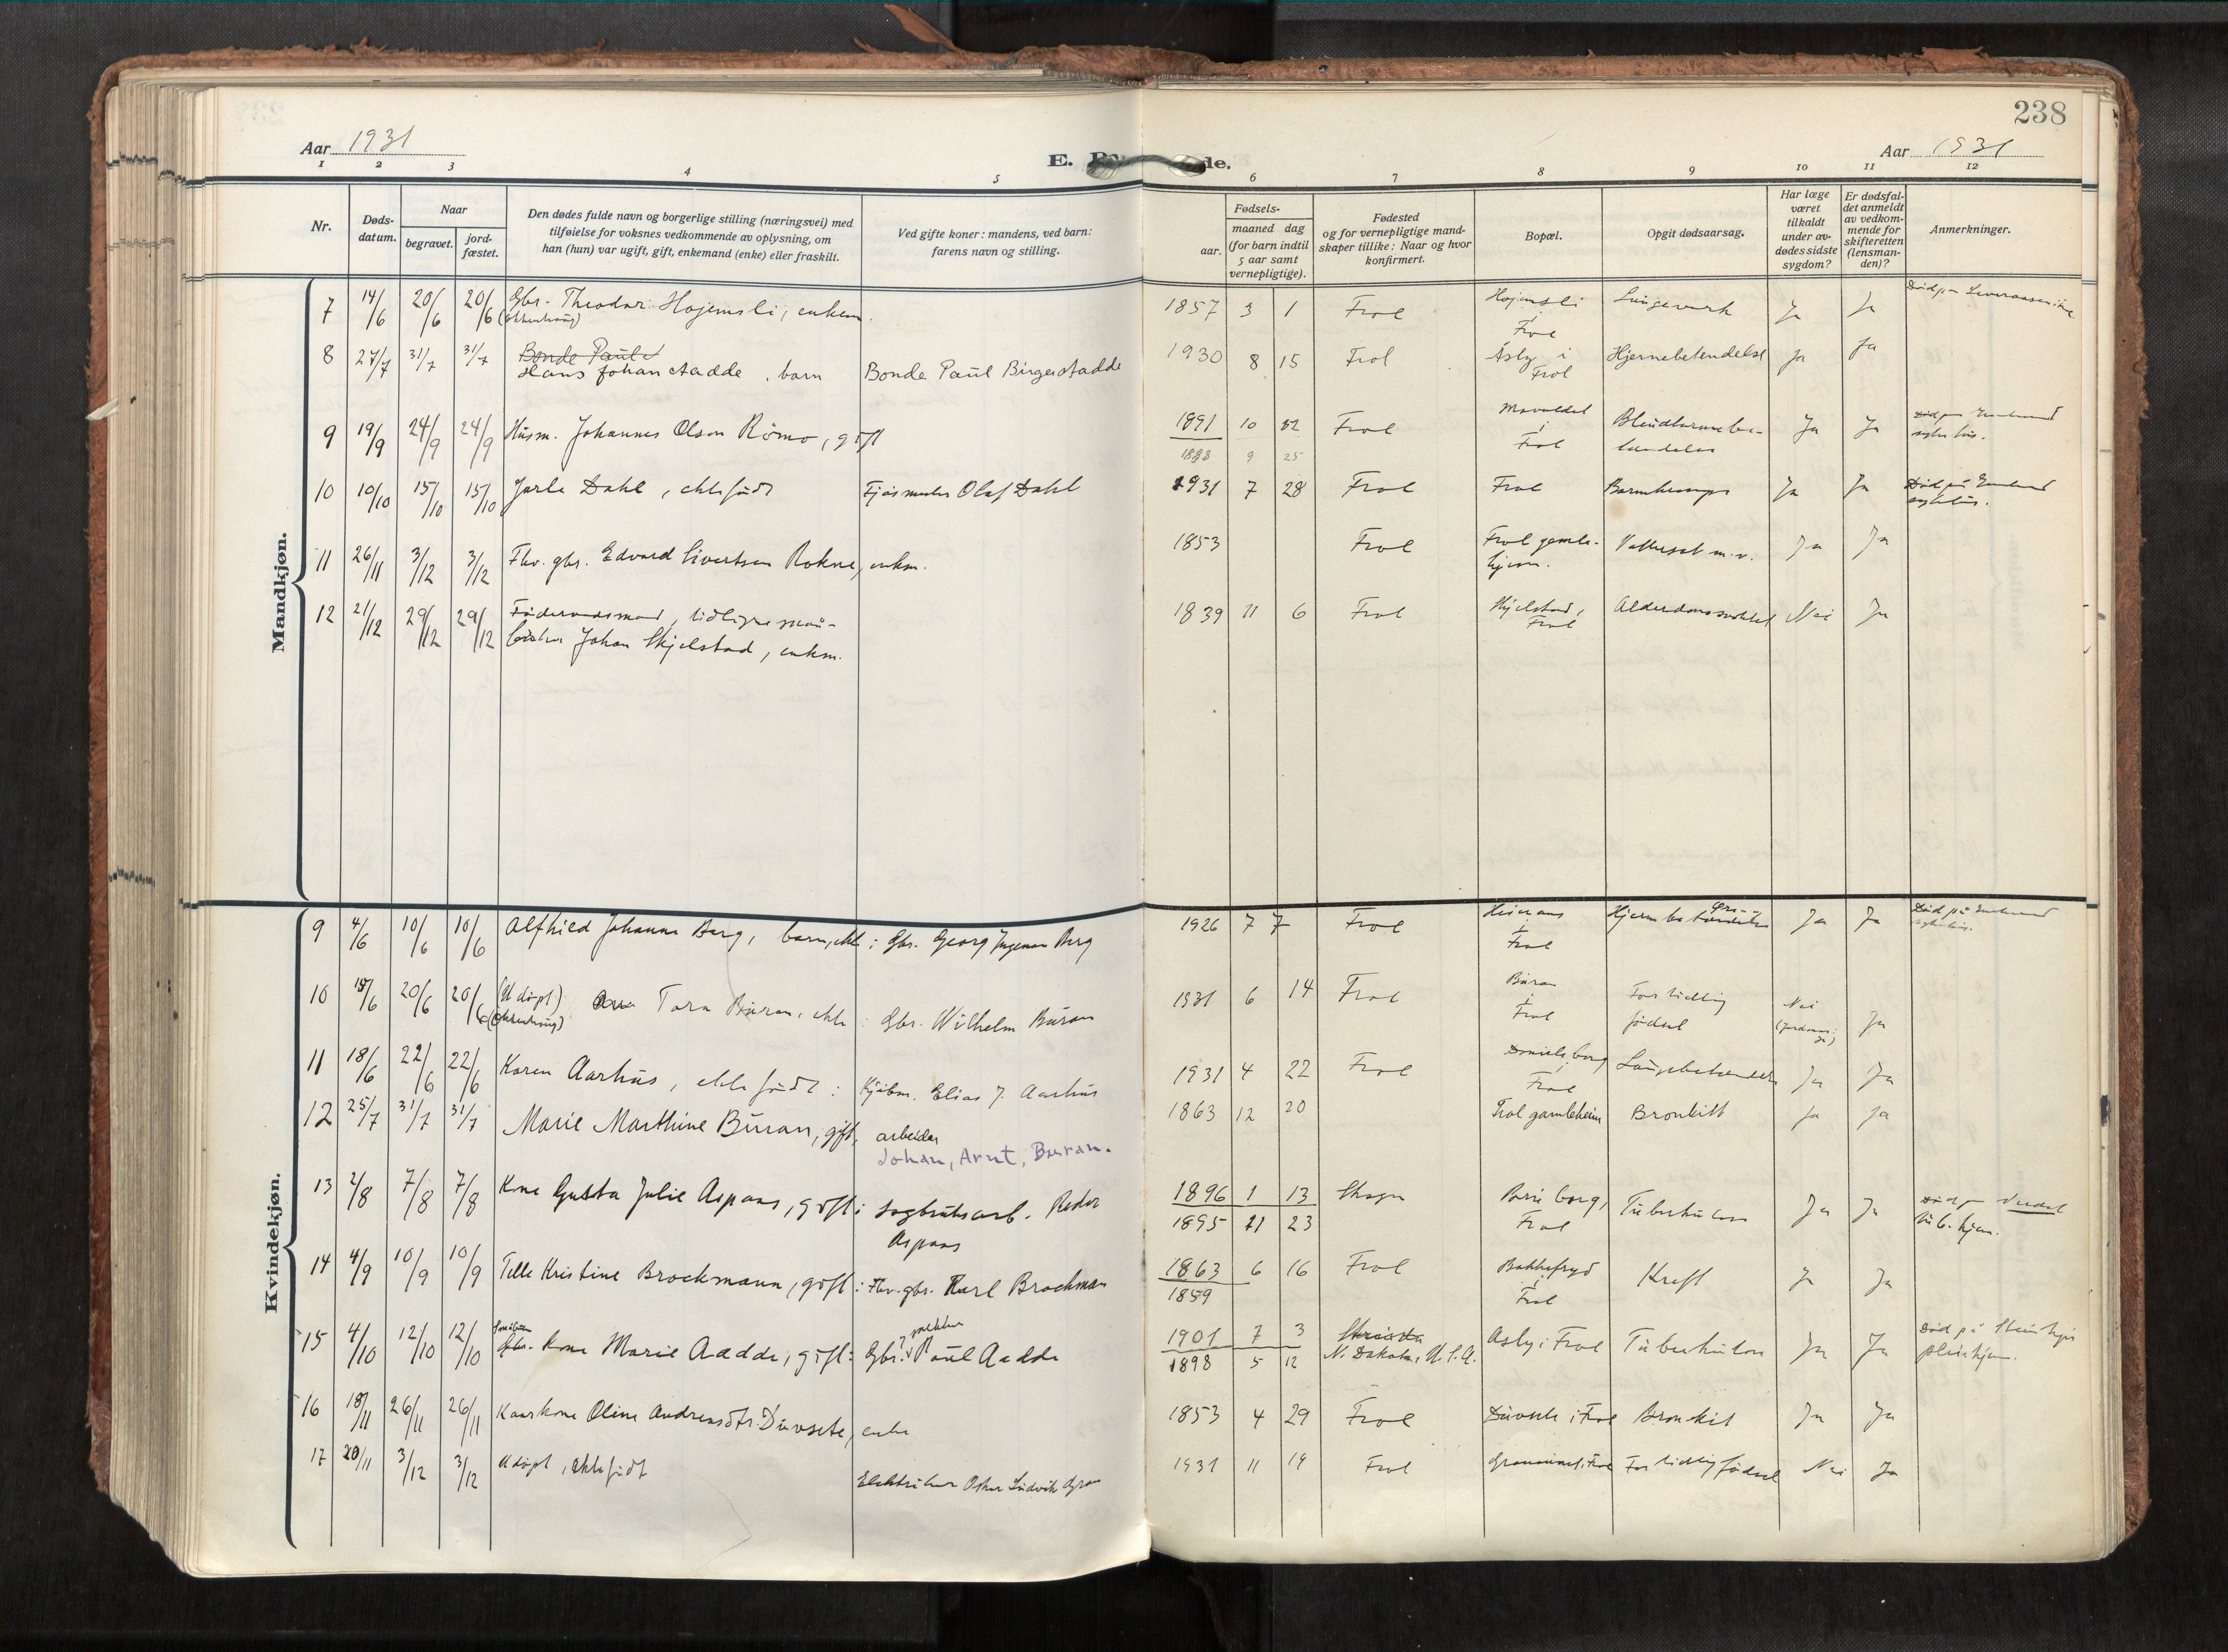 238
Aar 1931
Aar 1931
E. de.
1 2 3 4 5 6 7 8 9 10 11 12
Nr.
Døds-
datum.
Naar
begravet.
jord-
fæstet.
Den dødes fulde navn og borgerlige stilling (næringsvei) med
tilføielse for voksnes vedkommende av oplysning, om
han (hun) var ugift, gift, enkemand (enke) eller fraskilt.
Ved gifte koner: mandens, ved barn:
farens navn og stilling.
Fødsels-
aar.
maaned dag
(for barn indtil
5 aar samt
vernepligtige).
Fødested
og for vernepligtige mand-
skaper tillike: Naar og hvor
konfirmert.
Bopæl.
Opgit dødsaarsag.
Har læge
været
tilkaldt
under av-
dødes sidste
sygdom?
Er dødsfal-
det anmeldt
av vedkom-
mende for
skifteretten
(lensman-
den)?
Anmerkninger.
Mandkjøn.
7 14/6 20/6 20/6 Gbr. Theodor Hojemsli, enkem. 1857 3 1 Frol Hojemsli i Frol Ja Ja
8 27/7 31/7 31/7 Bonde Paul
Hans Johan Aadde, barn Bonde Paul Birger Aadde 1930 8 15 Frol Åsby i Frol Hjernebetendelse Ja Ja
9 19/9 24/9 24/9 Husm. Johannes Olson Rømo, gift 1891 10 Frol i Frol Ja Ja
1888 9 25
10 10/10 15/10 15/10 Jarle Dahl, ektefødt Fjøsmester Olaf Dahl 1931 7 28 Frol Frol Barnekrampe Ja Ja Død på
11 26/11 3/12 3/12 Fhv. gbr. Edvard Sivertsen Rokne, enkm. 1853 Frol Frol gamle-
hjem. Vattersot m.v. Ja Ja
12 21/12 29/12 29/12 Føderaadsmand, tidligere
Johan Skjelstad, enkm. 1839 11 6 Frol Skjelstad, Frol Alderdomssvakhet Nei Ja
Kvindekjøn.
9 4/6 10/6 10/6 Alfhild Johanne Berg, barn, ekte: Gbr. Georg Ingeman Berg 1926 7 7 Frol i Frol Ja Ja
10 15/6 20/6 20/6 (Udøpt) Tora Buran, ekte: Gbr. Wilhelm Buran 1931 6 14 Frol Buran i Frol For tidlig
fødsel Nei Ja
11 18/6 22/6 22/6 Karen Aarhus, ekte født: Kjøbm. Elias J. Aarhus 1931 4 22 Frol Danielsborg, Frol Lungebetendelse Ja Ja
12 25/7 31/7 31/7 Marie Marthine Buran, gift, arbeider
Johan, Arnt, Buran. 1863 12 20 Frol gamleheim Bronkitt Ja Ja
13 2/8 7/8 7/8 Kone Gusta Julie Aspaas, gift: sagbruksarb. Peder
Aspaas 1896 1 13 Skogn Frol Tuberkulose Ja Ja Død på Verdal
tub. hjem.
1895 11 23
14 4/9 10/9 10/9 Kristine Brockmann, gift: Fhv. gbr. Karl Brockman 1863 6 16 Frol Bakkefryd i Frol Kreft Ja Ja
1859
15 4/10 12/10 12/10 Kone Marie Aadde, gift: Gbr. Paul Aadde 1901 7 3 N. Dakota, U.S.A. Asby i Frol Tuberkulose Ja Ja Død på Steinkjer
pleiehjem.
1898 5 12
16 18/11 26/11 26/11 Kaarkone Oline Andreasdtr. Duvsete, enke 1853 4 29 Frol Duvsete i Frol Bronkit Ja Ja
17 20/11 3/12 3/12 Udøpt, ektefødt Elektriker Oskar Ludvik Gran 1931 11 19 Frol For tidlig fødsel Nei Ja